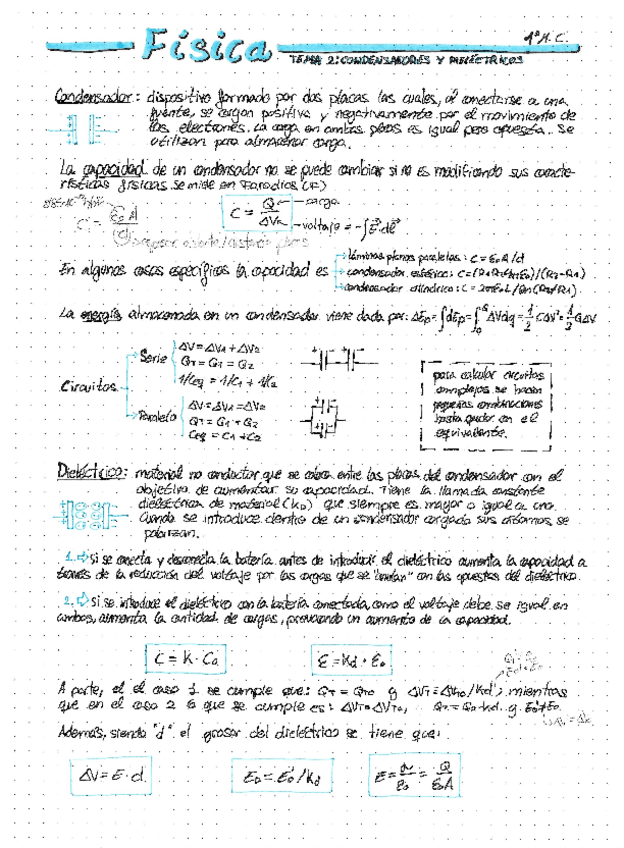 Física
1º A.C.
TEMA 2: CONDENSADORES Y DIELÉCTRICOS
Condensador: dispositivo formado por dos placas las cuales, al conectarse a una
fuente, se cargan positiva y negativamente por el movimiento de
los electrones. La carga en ambas placas es igual pero opuesta. Se
utilizan para almacenar carga.
La capacidad de un condensador no se puede cambiar si no es modificando sus caracte-
rísticas físicas. Se mide en Faradios (F)
C = Q/ΔV
carga
voltaje = -∫E dl
En algunos casos específicos la capacidad es
láminas planas paralelas: C = ε0A/d
condensador esférico:
condensador cilíndrico:
La energía almacenada en un condensador viene dada por: ΔEp = ∫dEp = ∫ΔVdq = 1/2 CΔV² = 1/2 QΔV
Circuitos
Serie
ΔV = ΔV1 + ΔV2
QT = Q1 = Q2
1/Ceq = 1/C1 + 1/C2
Paralelo
ΔV = ΔV1 = ΔV2
QT = Q1 + Q2
Ceq = C1 + C2
para calcular circuitos
complejos se hacen
pequeñas combinaciones
hasta quedar en el
equivalente.
Dieléctrico: material no conductor que se coloca entre las placas del condensador con el
objetivo de aumentar su capacidad. Tiene la llamada constante
dieléctrica de material (KD) que siempre es mayor o igual a uno.
Cuando se introduce dentro de un condensador cargado sus átomos se
polarizan.
1. ⇨ Si se conecta y desconecta la batería antes de introducir el dieléctrico aumenta la capacidad a
través de la reducción del voltaje por las cargas que se "anulan" con las opuestas del dieléctrico.
2. ⇨ Si se introduce el dieléctrico con la batería conectada, como el voltaje debe se igual en
ambos, aumenta la cantidad de cargas, provocando un aumento de la capacidad.
C = K · C0
ε = Kd · ε0
A parte, el el caso 1 se cumple que: QT = QT0 y ΔVT = ΔVT0/Kd; mientras
que en el caso 2 lo que se cumple es: ΔVT = ΔVT0,
Además, siendo "d" el grosor del dieléctrico se tiene que:
ΔV = E · d
ED = E0/Kd
E = σ/ε0 = Q/ε0A